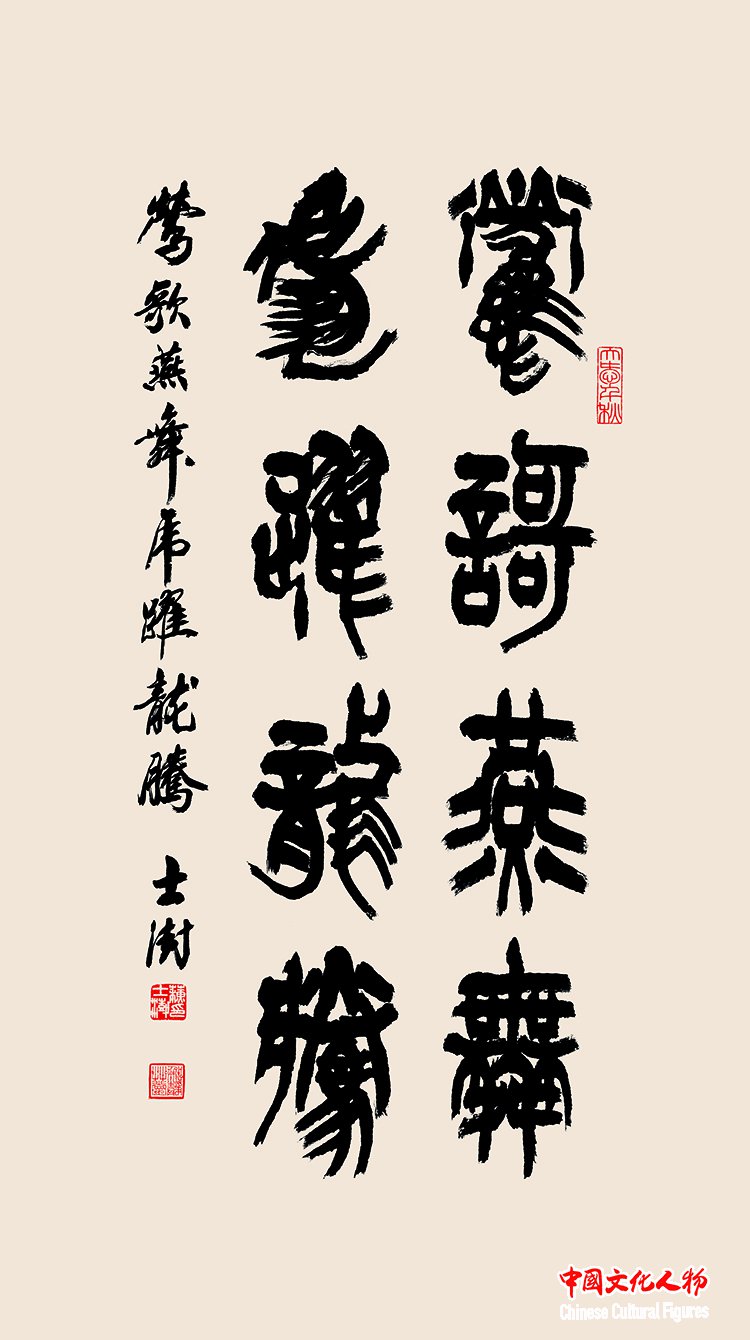 鶯謌燕舞
虎躍龍騰
鶯歌燕舞虎躍龍騰 士澍
中国文化人物
Chinese Cultural Figures